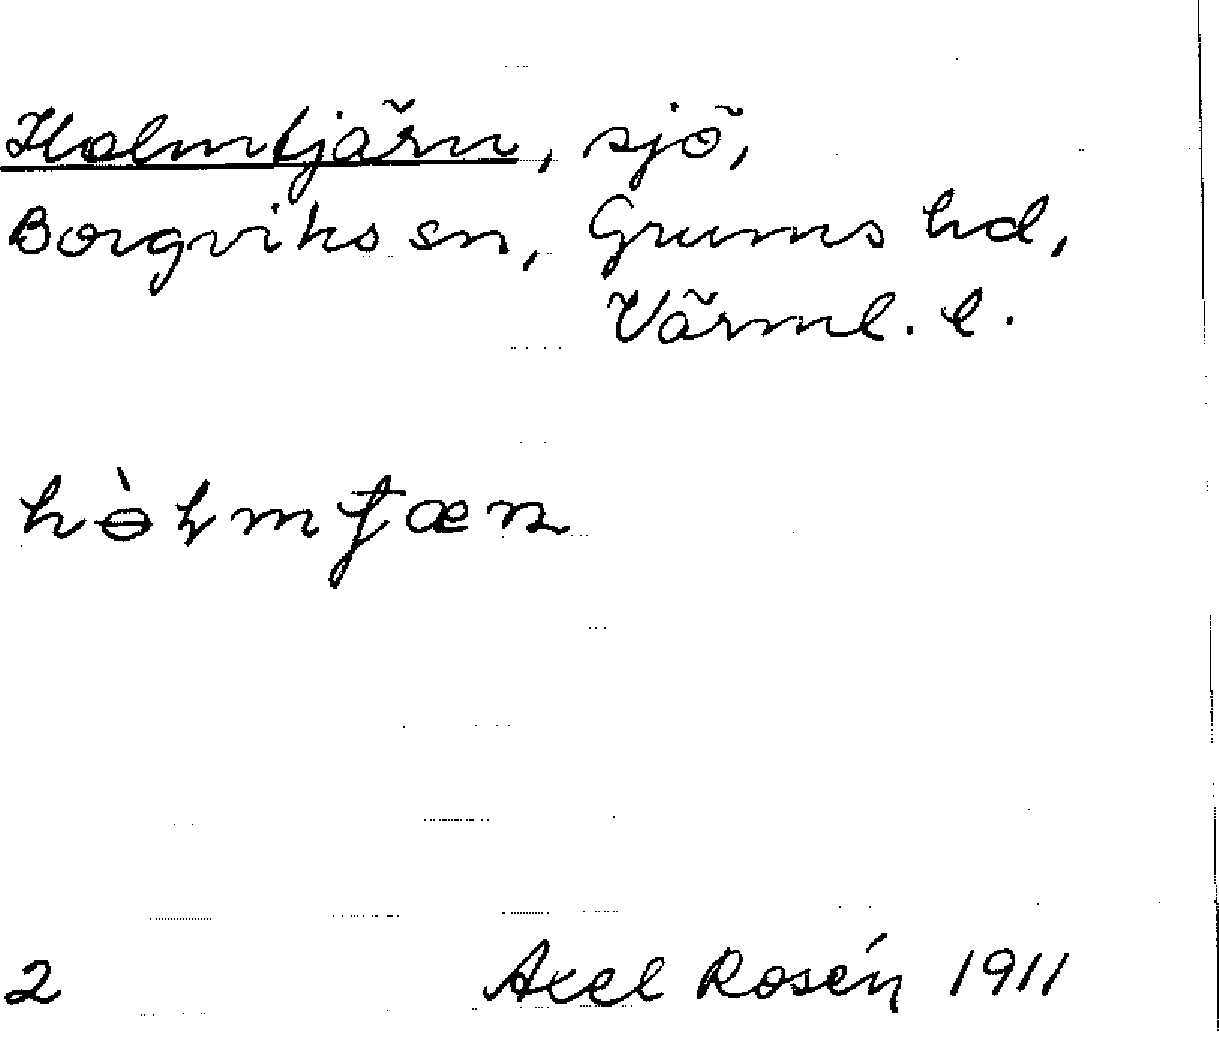 Holmtjärn, sjö,
Borgviks sn, Grums hd,
Värml. l.
hɵ̀ɫmʈæɳ
2 Axel Rosén 1911